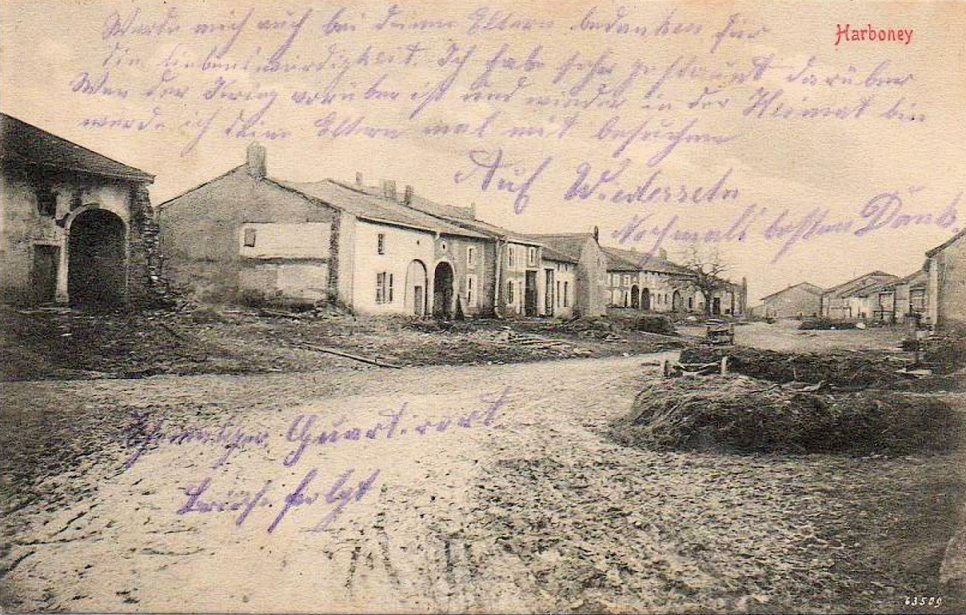 Harboney
Werde mich auch bei deinen Eltern bedanken für
die Liebenswürdigkeit. Ich habe sehr gestaunt darüber
Wen der Krieg vorüber ist und wieder in der Heimat bin
werde ich dein Eltern mal mit besuchen
Auf Wiedersehn
Nochmals besten Dank
Quartierort
Brief folgt
63500